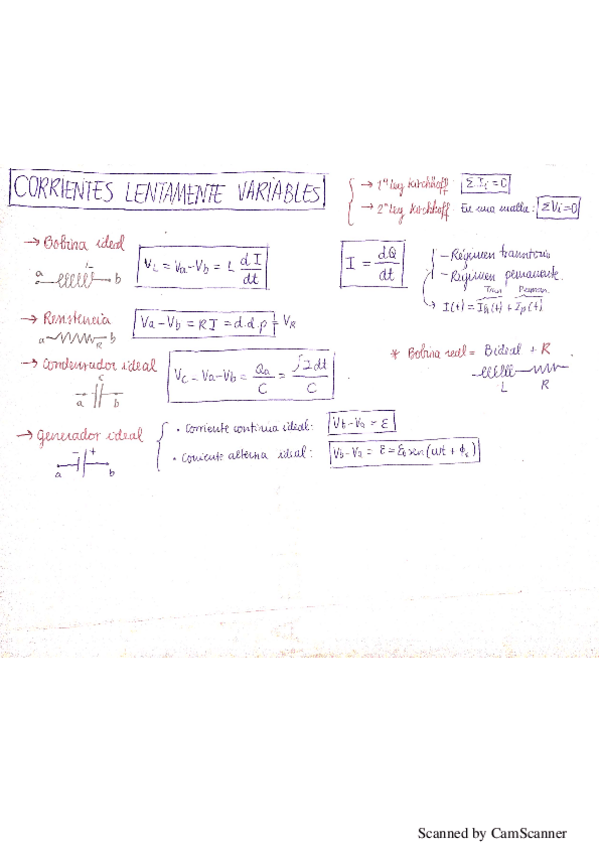 CORRIENTES LENTAMENTE VARIABLES
→ 1ª ley Kirchhoff: ΣIᵢ=0
→ 2ª ley Kirchhoff En una malla: ΣVi=0
→ Bobina ideal
a L b
V_L = Va-Vb = L dI/dt
I = dQ/dt
- Régimen transitorio
- Régimen permanente.
Tran Perman.
→ I(t) = I_tr(t) + I_p(t)
→ Resistencia
a R b
Va-Vb = RI = d.d.p = V_R
→ Condensador ideal
a C b
V_C = Va-Vb = Qa/C = ∫I dt/C
* Bobina real = Bideal + R
L R
→ Generador ideal
a - + b
• Corriente continua ideal: Vb-Va = ε
• Corriente alterna ideal: Vb-Va = ε = ε₀ sen(ωt + ϕ)
Scanned by CamScanner